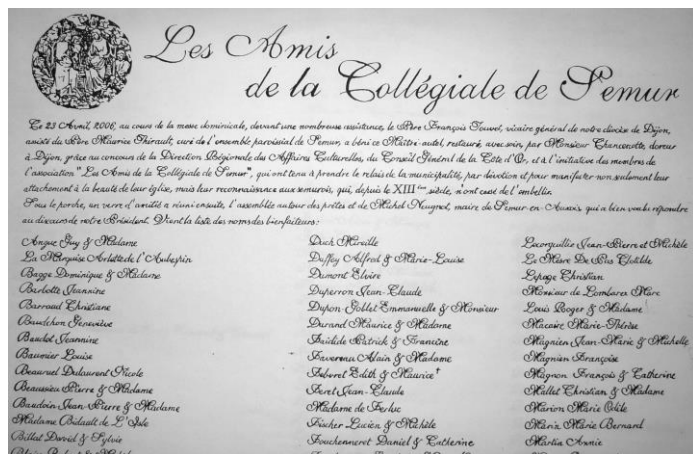 Les Amis
de la Collégiale de Semur
Le 23 Avril, 2006, au cours de la messe dominicale, devant une nombreuse assistance, le Père François Touvet, vicaire général de notre diocèse de Dijon,
assisté du Père Maurice Thirault, curé de l'ensemble paroissial de Semur, a béni ce Maître-autel, restauré, avec soin, par Monsieur Chancenotte, doreur
à Dijon, grâce au concours de la Direction Régionale des Affaires Culturelles, du Conseil Général de la Côte d'Or, et à l'initiative des membres de
l'association "Les Amis de la Collégiale de Semur", qui ont tenu à prendre le relais de la municipalité, par dévotion et pour manifester non seulement leur
attachement à la beauté de leur église, mais leur reconnaissance aux semurois, qui, depuis le XIIIème siècle, n'ont cessé de l'embellir.
Sous le porche, un verre d'amitié a réuni ensuite, l'assemblée autour des prêtres et de Michel Neugnot, maire de Semur-en-Auxois qui a bien voulu répondre
au discours de notre Président. Vient la liste des noms des bienfaiteurs:
Angue Guy & Madame
La Marquise Arlette de l'Aubespin
Bagge Dominique & Madame
Barbotte Jeannine
Barraud Christiane
Baudchon Geneviève
Baudot Jeannine
Baumier Louise
Beauruel Dulaurent Nicole
Beaussieu Pierre & Madame
Baudoin Jean-Pierre & Madame
Madame Bidault de L'Isle
Billat David & Sylvie
Duch Mireille
Duffey Alfred & Marie-Louise
Dumont Elvire
Duperron Jean-Claude
Dupon-Goblet Emmanuelle & Monsieur
Durand Maurice & Madame
Faidide Patrick & Francine
Favereau Alain & Madame
Feboret Edith & Maurice†
Feret Jean-Claude
Madame de Ferluc
Fischer Lucien & Michèle
Fouchenneret Daniel & Catherine
Lecorguillie Jean-Pierre et Michèle
Le Marc De Blas Clotilde
Lepage Christian
Monsieur de Lombares Marc
Louis Roger & Madame
Macaire Marie-Thérèse
Magnien Jean-Marie & Michelle
Magnien Françoise
Magnon François & Catherine
Mallet Christian & Madame
Marion Marie Odile
Marin Marie Bernard
Martin Annie